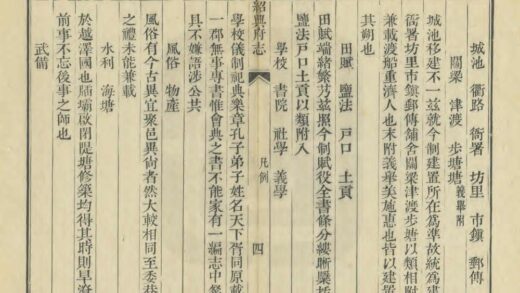 城池 衢路 衙署 坊里 市鎮 郵傳
關梁 津渡 步塘塘義舉附
城池移建不一玆就今制建置所在爲準故統爲建
衙署坊里市鎮郵傳舖舍關梁津渡步塘以類相附
兼載渡船重濟人也末附義舉美施惠也皆以建置
其朔也
田賦 鹽法 戸口 土貢
田賦端緒繁芿玆照今制賦役全書條分縷晰槩括
鹽法戸口土貢以類附入
學校 書院 社學 義學
紹興府志 凡例 四
學校儀制祀典樂章孔子弟子姓名天下胥同原載
一郡無事專書惟會典之書不能家有一編志中
具不嫌語涉公共
風俗 物產
風俗有今古異宜衆邑異尙者然大較相同至委巷
之禮未能兼載
水利 海塘
於越澤國也牐壩啟閉隄塘修築均得其時則旱潦
前事不忘後事之師也
武備